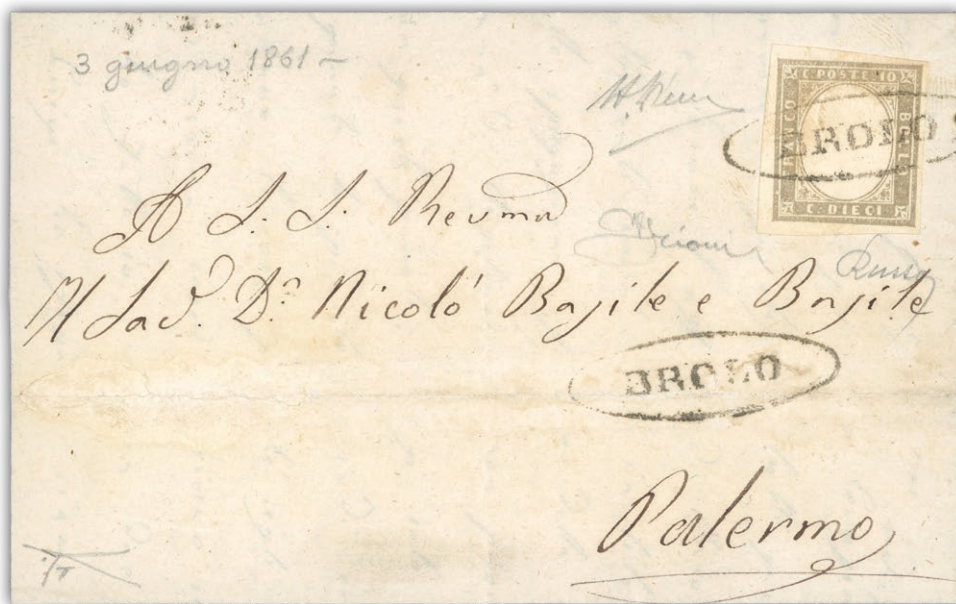 3 giugno 1861 –
C. POSTE 10
FRANCO
BOLLO
C. DIECI
BROLO
A S. S. Reuma
Sac. D. Nicoló Basile e Basile
BROLO
Palermo